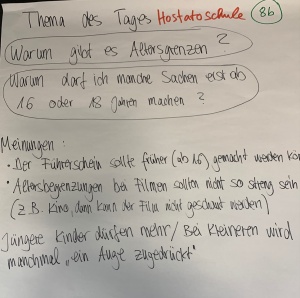 Thema des Tages Hostatoschule 86
Warum gibt es Altersgrenzen ?
Warum darf ich manche Sachen erst ab
16 oder 18 Jahren machen ?
Meinungen :
• Der Führerschein sollte früher (ab 16) gemacht werden kön
• Altersbegrenzungen bei Filmen sollten nicht so streng sein
(z.B. Kino, dann kann der Film nicht geschaut werden)
Jüngere Kinder dürfen mehr / Bei Kleineren wird
manchmal „ein Auge zugedrückt"